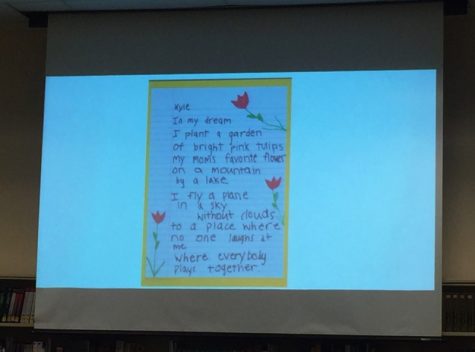 Kyle
In my dream
I plant a garden
Of bright pink tulips
my moms favorite flower
on a mountain
by a lake
I fly a plane
in a sky
without clouds
to a place where
no one laughs at
me
where everybody
plays together.